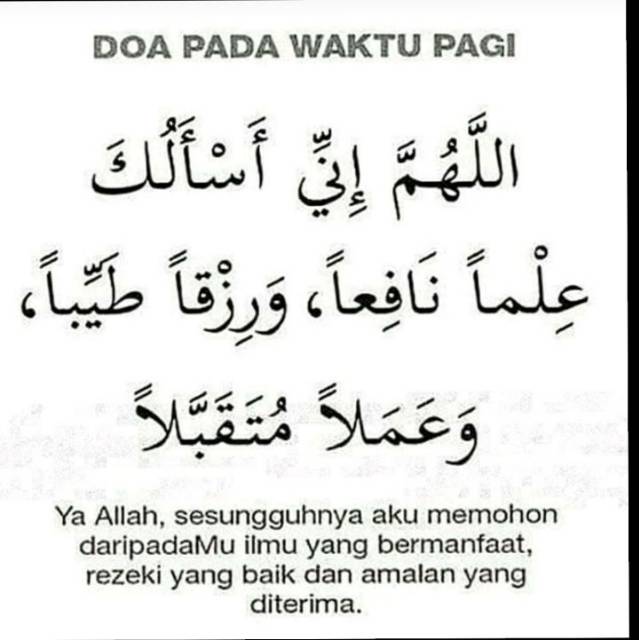 DOA PADA WAKTU PAGI
اللَّهُمَّ إِنِّي أَسْأَلُكَ
عِلْماً نَافِعاً، وَرِزْقاً طَيِّباً،
وَعَمَلاً مُتَقَبَّلاً
Ya Allah, sesungguhnya aku memohon
daripadaMu ilmu yang bermanfaat,
rezeki yang baik dan amalan yang
diterima.